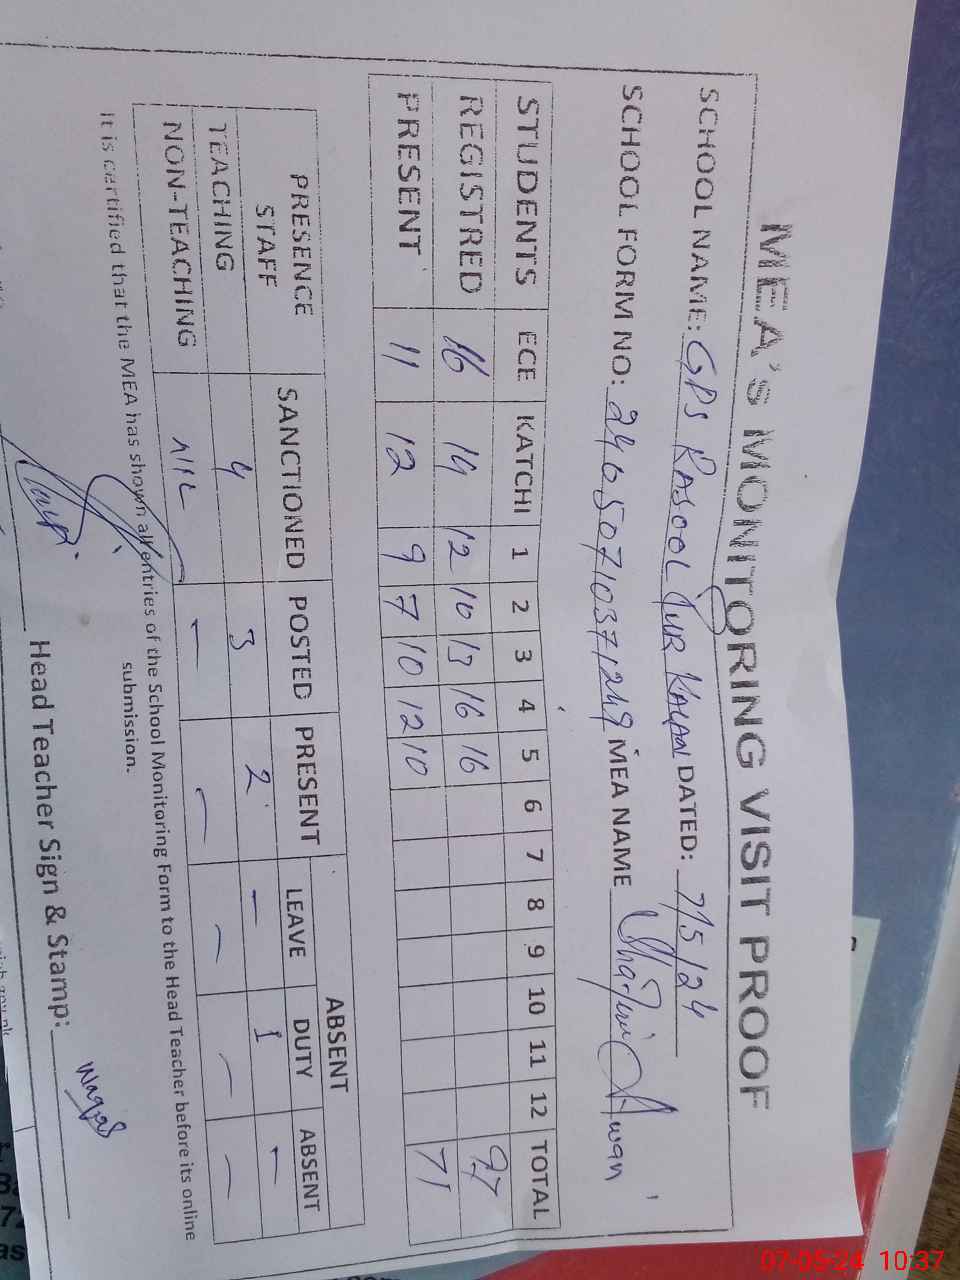 MEA's MONITORING VISIT PROOF
SCHOOL NAME: GPS RASOOL PUR KALAN DATED: 7/5/24
SCHOOL FORM NO: 24650710371249 MEA NAME Awan
STUDENTS ECE KATCHI 1 2 3 4 5 6 7 8 9 10 11 12 TOTAL
REGISTRED 16 14 12 10 13 16 16 97
PRESENT 11 12 9 7 10 12 10 71
ABSENT
PRESENCE STAFF SANCTIONED POSTED PRESENT LEAVE DUTY ABSENT
TEACHING 4 3 2 - 1 -
NON-TEACHING NIL - - - - -
It is certified that the MEA has shown all entries of the School Monitoring Form to the Head Teacher before its online
submission.
Head Teacher Sign & Stamp:
Waqas
07-05-24 10:37